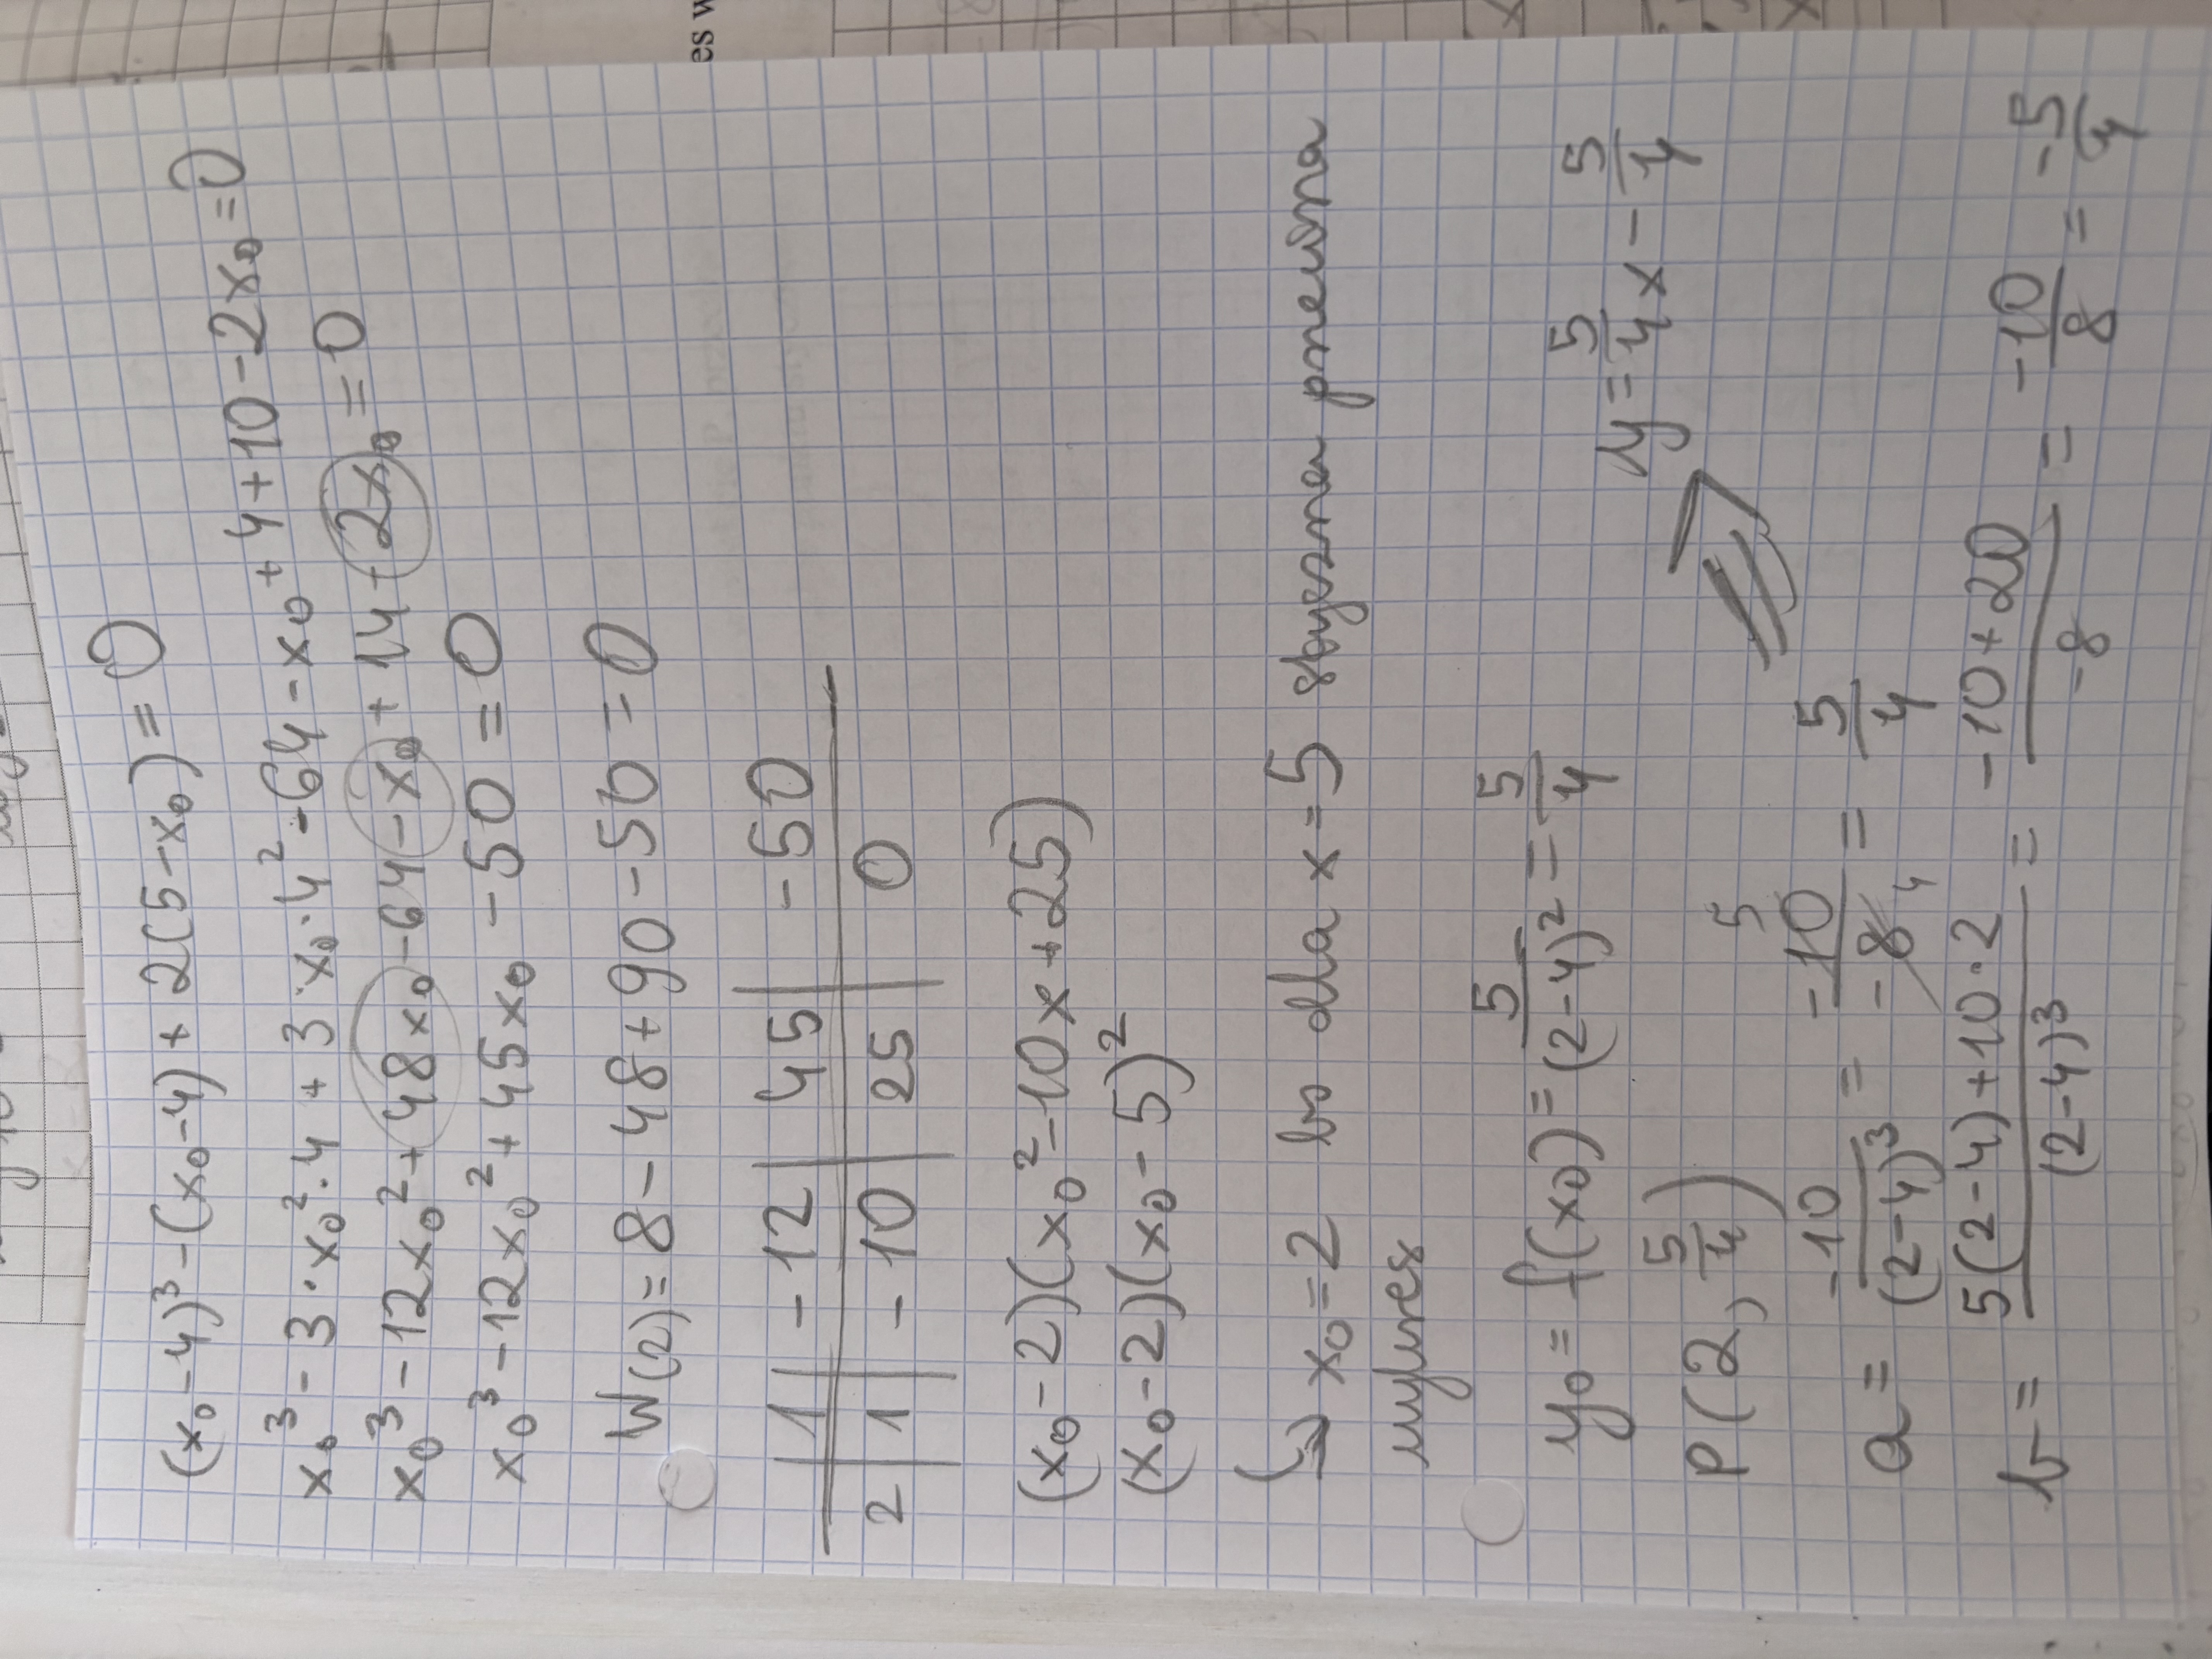 es w
(x₀-4)³-(x₀-4)+2(5-x₀)=0
x₀³-3·x₀²·4+3·x₀·4²-64-x₀+4+10-2x₀=0
x₀³-12x₀²+48x₀-64-x₀+14-2x₀=0
x₀³-12x₀²+45x₀-50=0
W(2)=8-48+90-50=0
1 | -12 | 45 | -50
2 | 1 | -10 | 25 | 0
(x₀-2)(x₀²-10x+25)
(x₀-2)(x₀-5)²
↳ x₀=2 bo dla x=5 styczna pnewna
wykres
y₀=f(x₀)=5/(2-4)²=5/4
P(2, 5/4) y=5/4x-5/4
a=-10/(2-4)³=-10/-8=5/4
5
4
b=(5(2-4)+10·2)/(2-4)³=(-10+20)/-8=-10/8=-5/4